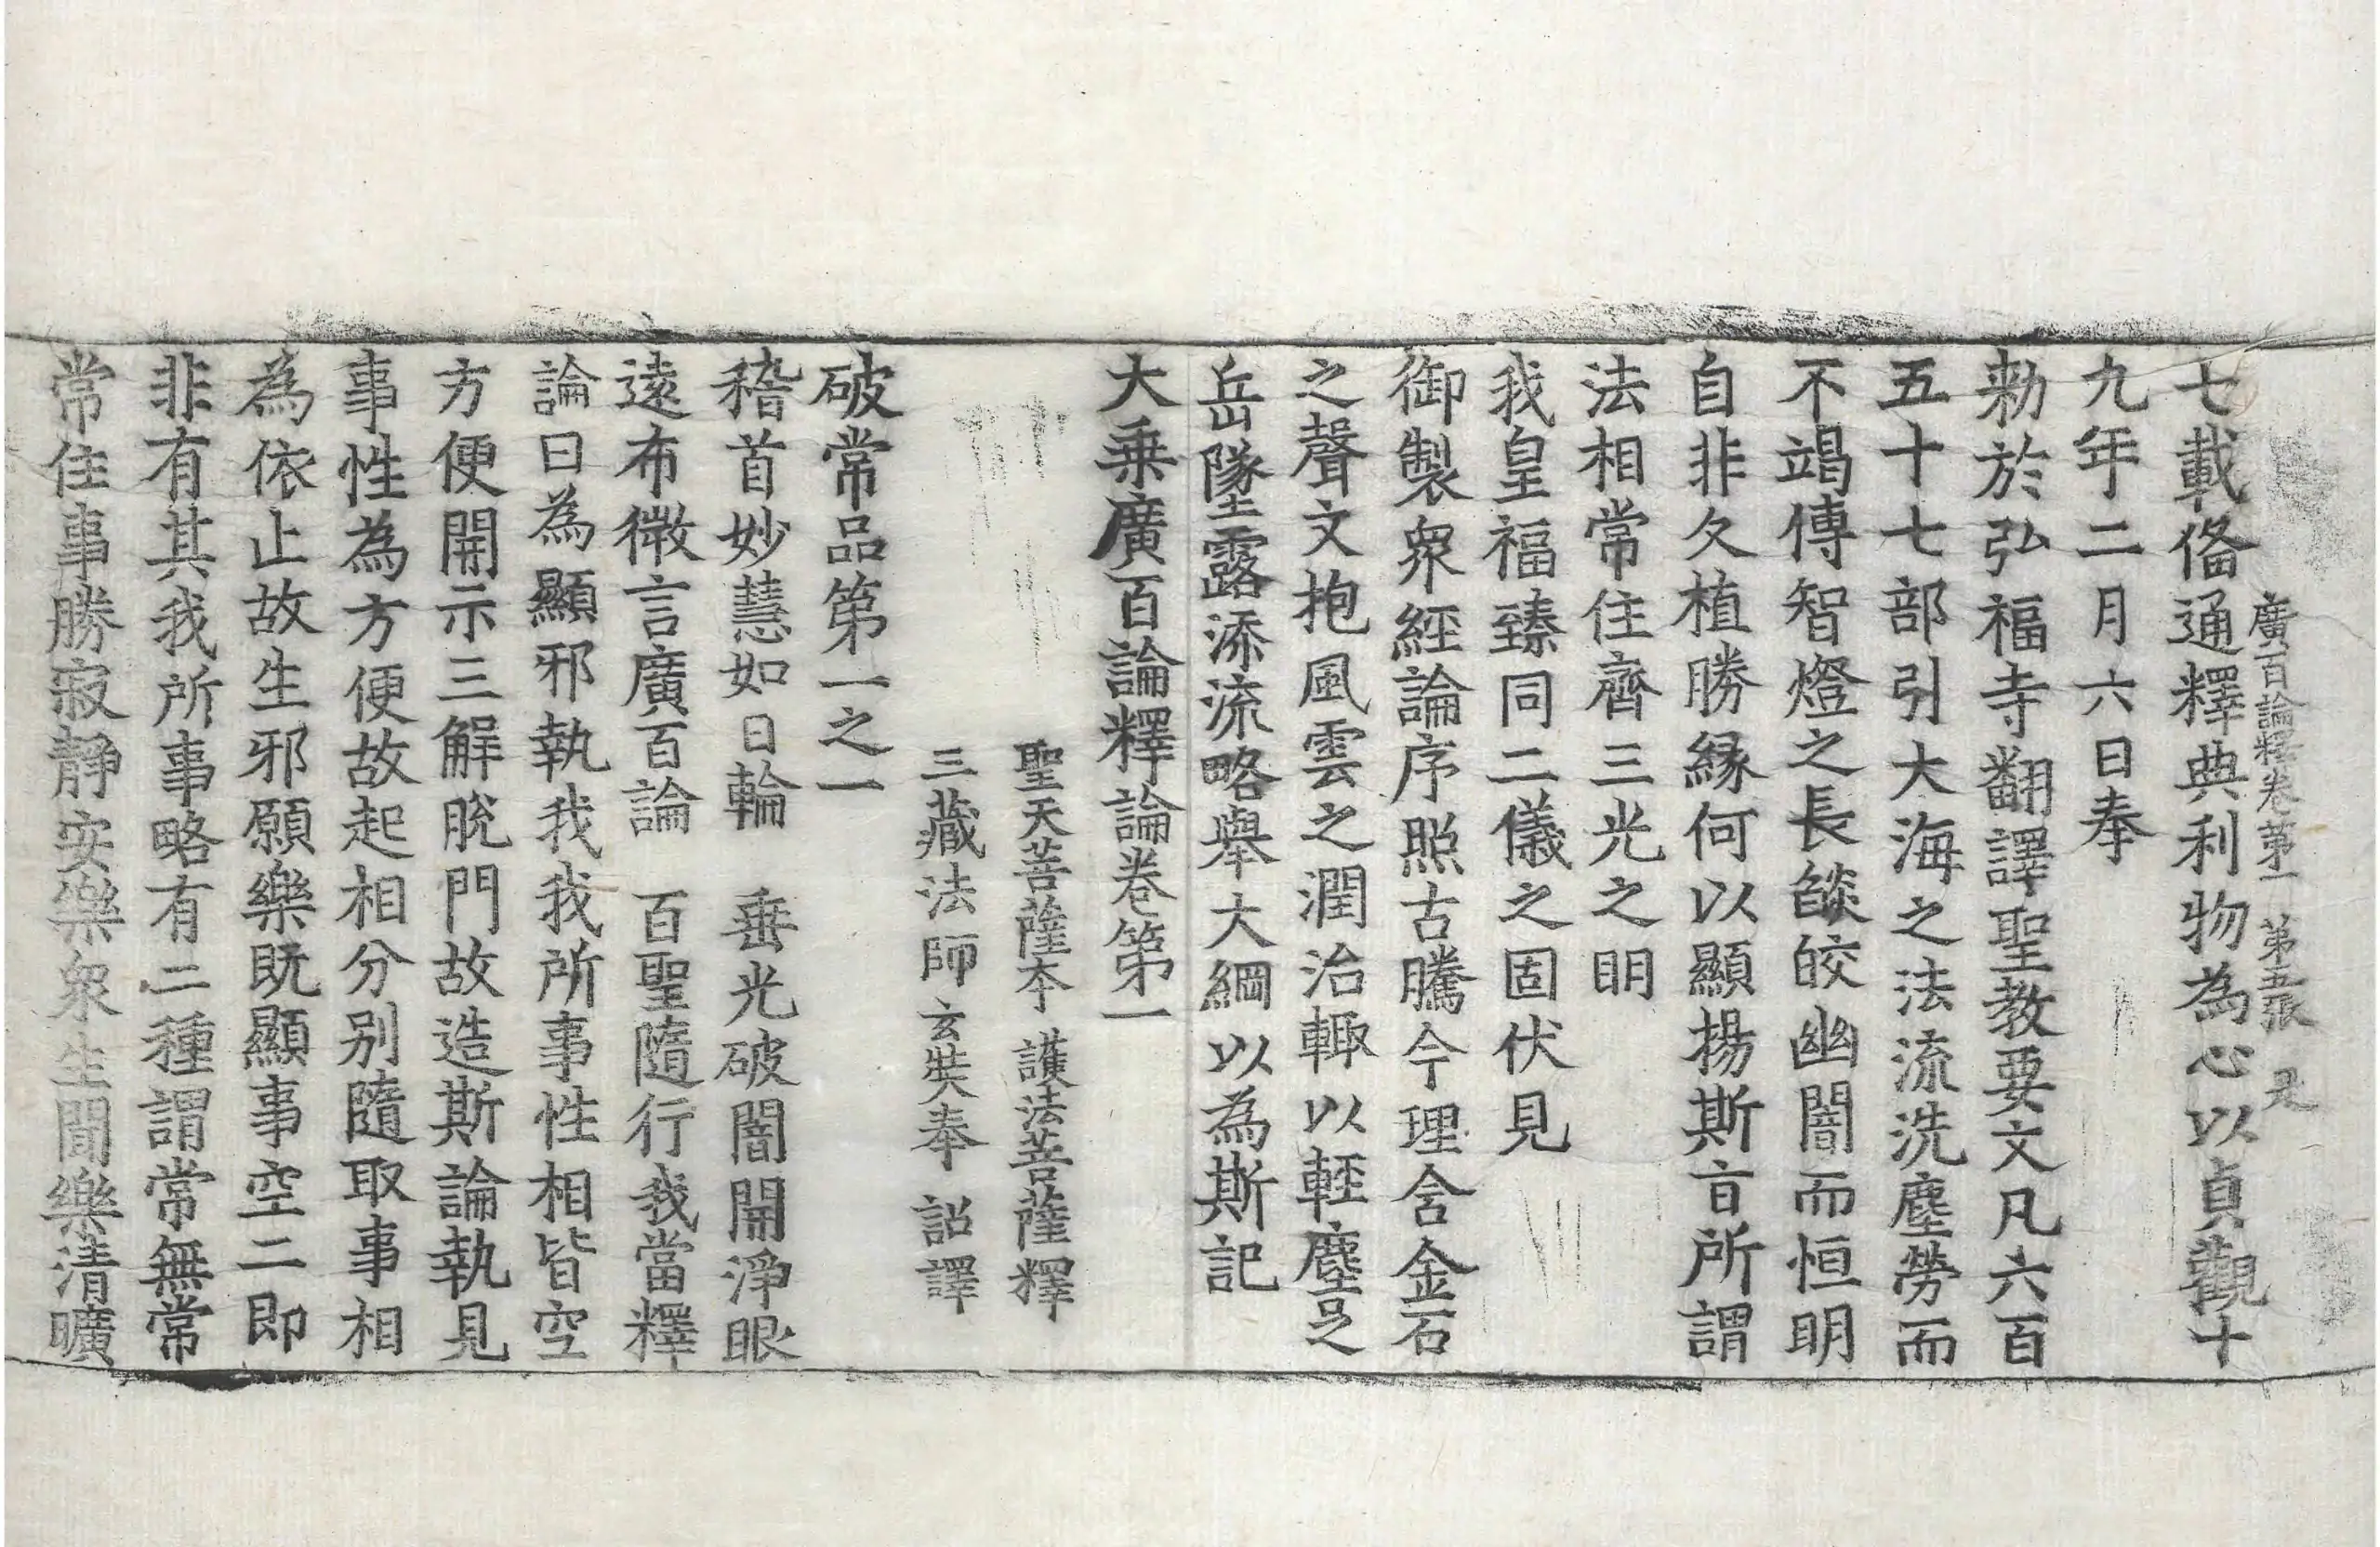 廣百論釋卷第一 第五張 是
七載俻通釋典利物為心以貞觀十
九年二月六日奉
勑於弘福寺翻譯聖教要文凡六百
五十七部引大海之法流洗塵勞而
不竭傳智燈之長燄皎幽闇而恒明
自非久植勝緣何以顯揚斯旨所謂
法相常住齊三光之明
我皇福臻同二儀之固伏見
御製衆經論序照古騰今理含金石
之聲文抱風雲之潤治輙以輕塵足
岳墜露添流略舉大綱以為斯記
大乗廣百論釋論卷第一
聖天菩薩本 護法菩薩釋
三藏法師玄奘奉 詔譯
破常品第一之一
稽首妙慧如日輪 垂光破闇開淨眼
遠布微言廣百論 百聖隨行我當釋
論曰為顯邪執我我所事性相皆空
方便開示三解脫門故造斯論執見
事性為方便故起相分别隨取事相
為依止故生邪願樂既顯事空二即
非有其我所事略有二種謂常無常
常住事勝寂靜安樂衆生聞樂清曠